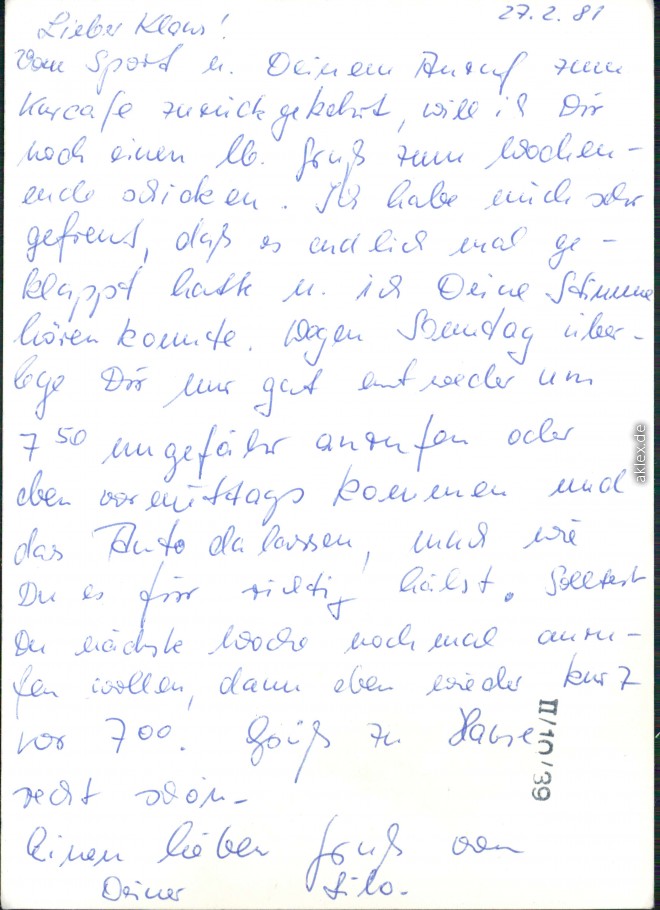 27.2.81
Lieber Klaus!
Vom Sport u. Deinem Anruf zum
Kurcafe zurückgekehrt, will ich Dir
noch einen lb. Gruß zum Wochen-
ende schicken. Ich habe mich sehr
gefreut, daß es endlich mal ge-
klappt hatte u. ich Deine Stimme
hören konnte. Wegen Sonntag über-
lege Dir nur gut entweder um
7 50 ungefähr anrufen oder
eben vormittags kommen und
das Auto da lassen, wie
Du es für richtig hälst. Solltest
Du nächste Woche noch mal anru-
fen wollen, dann eben wieder kurz
vor 7 00. Grüß zu Hause
recht schön-
Einen lieben Gruß von
Deiner Silo.
II/10/39
aklex.de